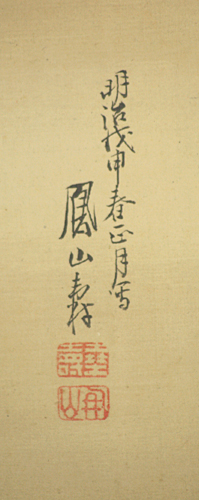 明治戊申春正月写
鳳山